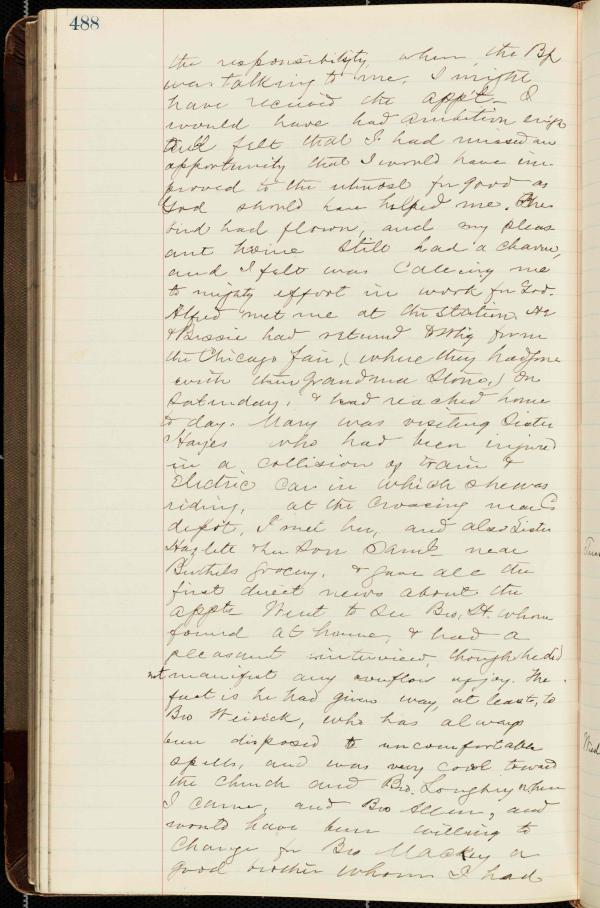 488
the responsibility when the Bp
was talking to me, I might
have received the appt. I
would have had ambition enigh
and felt that I had missed an
opportunity that I would have im
proved to the utmost for good as
God should have helped me. The
bird had flown, and my pleas
ant home still had a charm,
and I felt was calling me
to mighty effort in work for God.
Alfred met me at the station. He
& Bessie had returned to Whg from
the Chicago fair, (where they had gone
with their Grandma Stone,) on
Saturday, & had reached home
to day. Mary was visiting Sister
Hayes who had been injured
in a collision of train &
Electric car in which she was
riding, at the crossing near
depot, I met her, and also Sister
Hazlett & her son Saml near
grocery, & gave all the
first direct news about the
appts. Went to see Bro. St. whom
found at home, & had a
pleasant interview, though he did
not manifest any overflow of joy. The
fact is he had given way, at least, to
Bro Weirick, who has always
been disposed to uncomfortable
spells, and was very cool toward
the church and Bro. Loughry when
I came, and Bro Allen, and
would have been willing to
change for Bro Mackey a
good brother whom I had